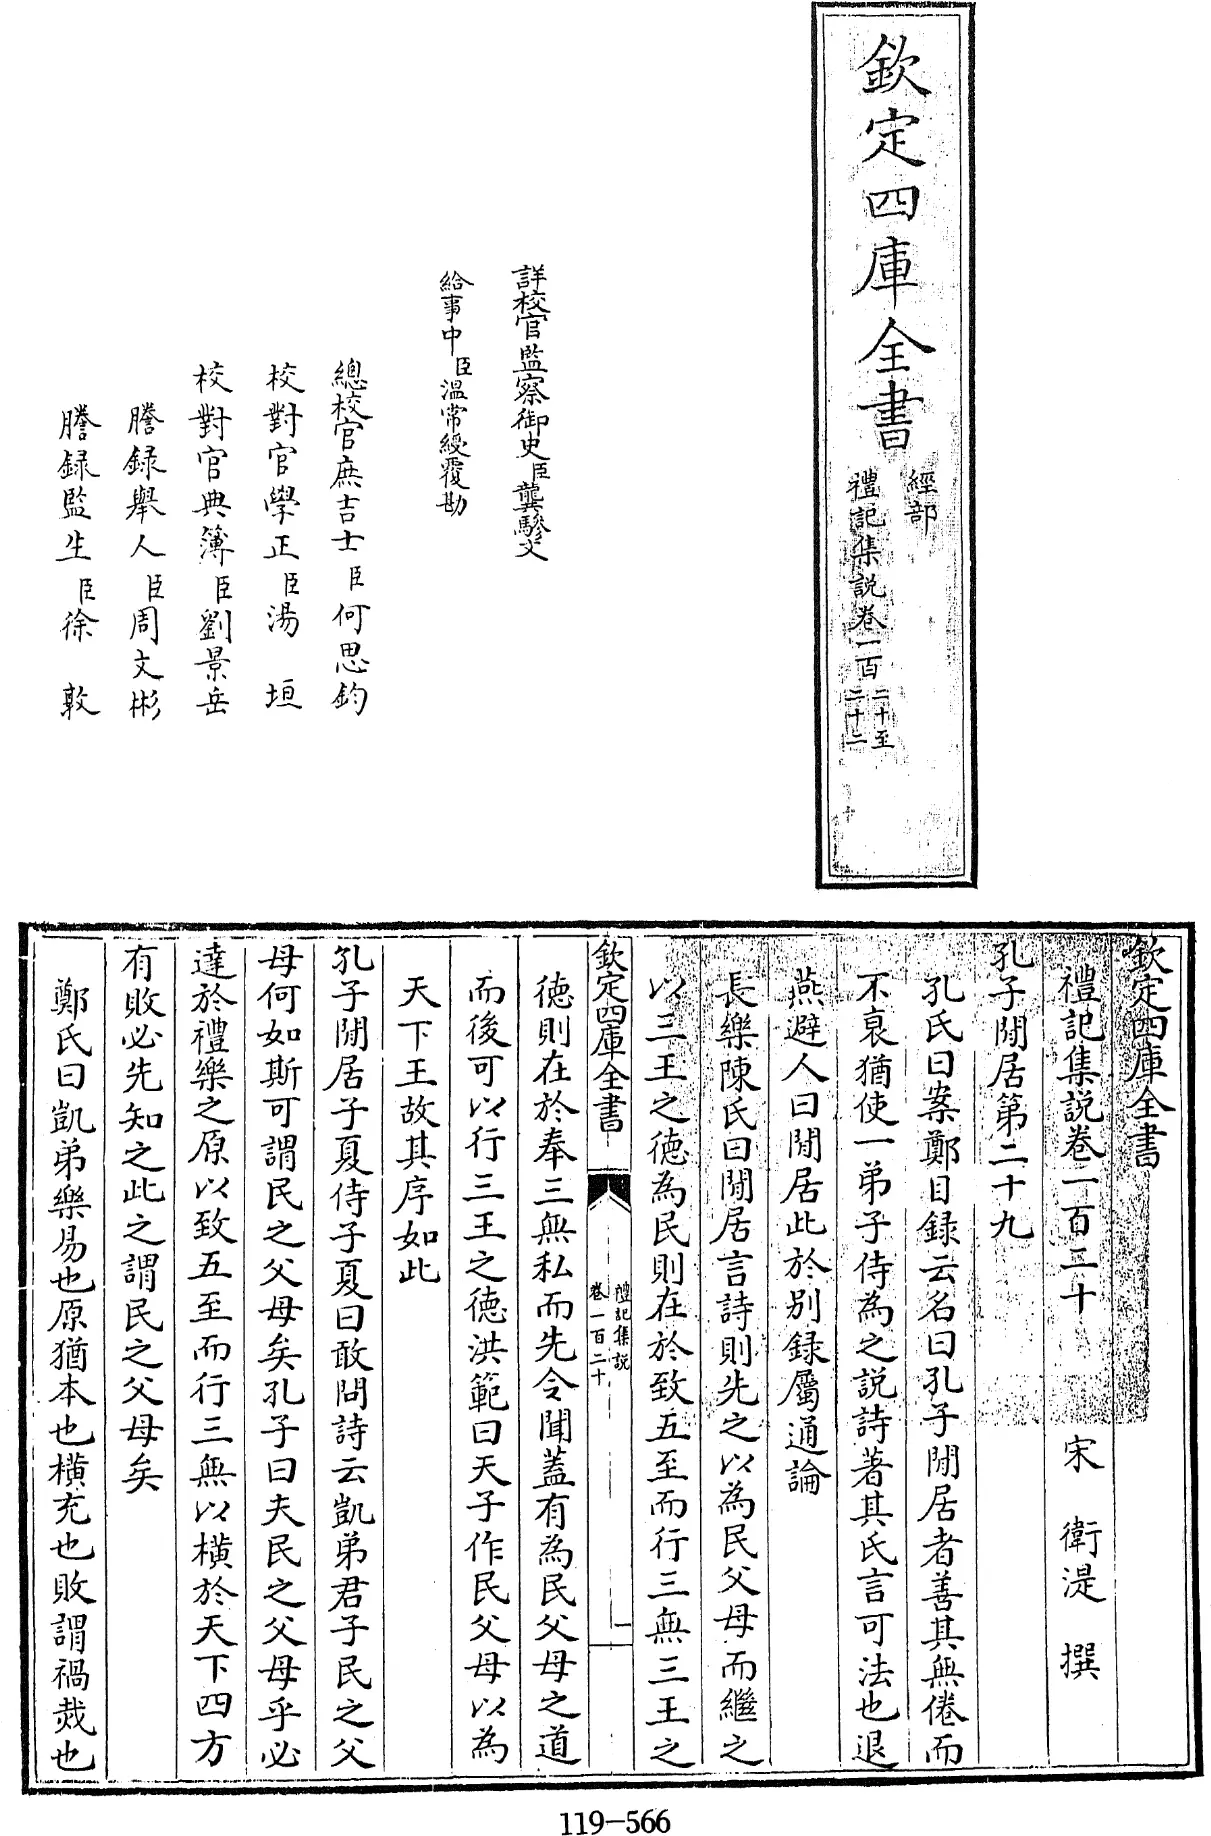 欽定四庫全書
經部
禮記集說卷一百二十至
二十二
詳校官監察御史臣龔驂文
給事中臣溫常綬覆勘
總校官庶吉士臣何思鈞
校對官學正臣湯垣
校對官典簿臣劉景岳
謄錄舉人臣周文彬
謄錄監生臣徐敦
欽定四庫全書
禮記集說卷一百二十
宋 衛湜 撰
孔子閒居第二十九
孔氏曰案鄭目錄云名曰孔子閒居者善其無倦而
不䙝猶使一弟子侍為之說詩著其氏言可法也退
燕避人曰閒居此於別錄屬通論
長樂陳氏曰閒居言詩則先之以為民父母而繼之
以三王之德為民則在於致五至而行三無三王之
欽定四庫全書
禮記集說
卷一百二十
一
德則在於奉三無私而先令聞蓋有為民父母之道
而後可以行三王之德洪範曰天子作民父母以為
天下王故其序如此
孔子閒居子夏侍子夏曰敢問詩云凱弟君子民之父
母何如斯可謂民之父母矣孔子曰夫民之父母乎必
達於禮樂之原以致五至而行三無以橫於天下四方
有敗必先知之此之謂民之父母矣
鄭氏曰凱弟樂易也原猶本也橫充也敗謂禍烖也
119-566